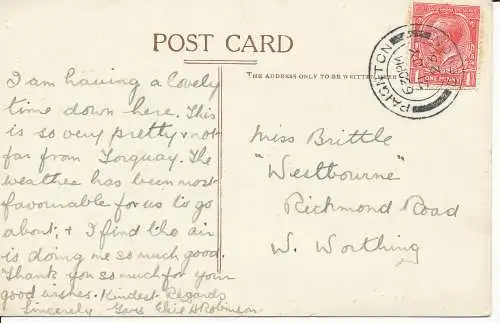 POST CARD
THE ADDRESS ONLY TO BE WRITTEN HERE
PAIGNTON
ONE PENNY
I am having a lovely
time down here. This
is so very pretty & not
far from Torquay. The
weather has been most
favourable for us to go
about, & I find the air
is doing me so much good.
Thank you so much for your
good wishes. Kindest Regards
Sincerely Yours Elsie A Robinson.
Miss Brittle
"Westbourne"
Richmond Road
W. Worthing